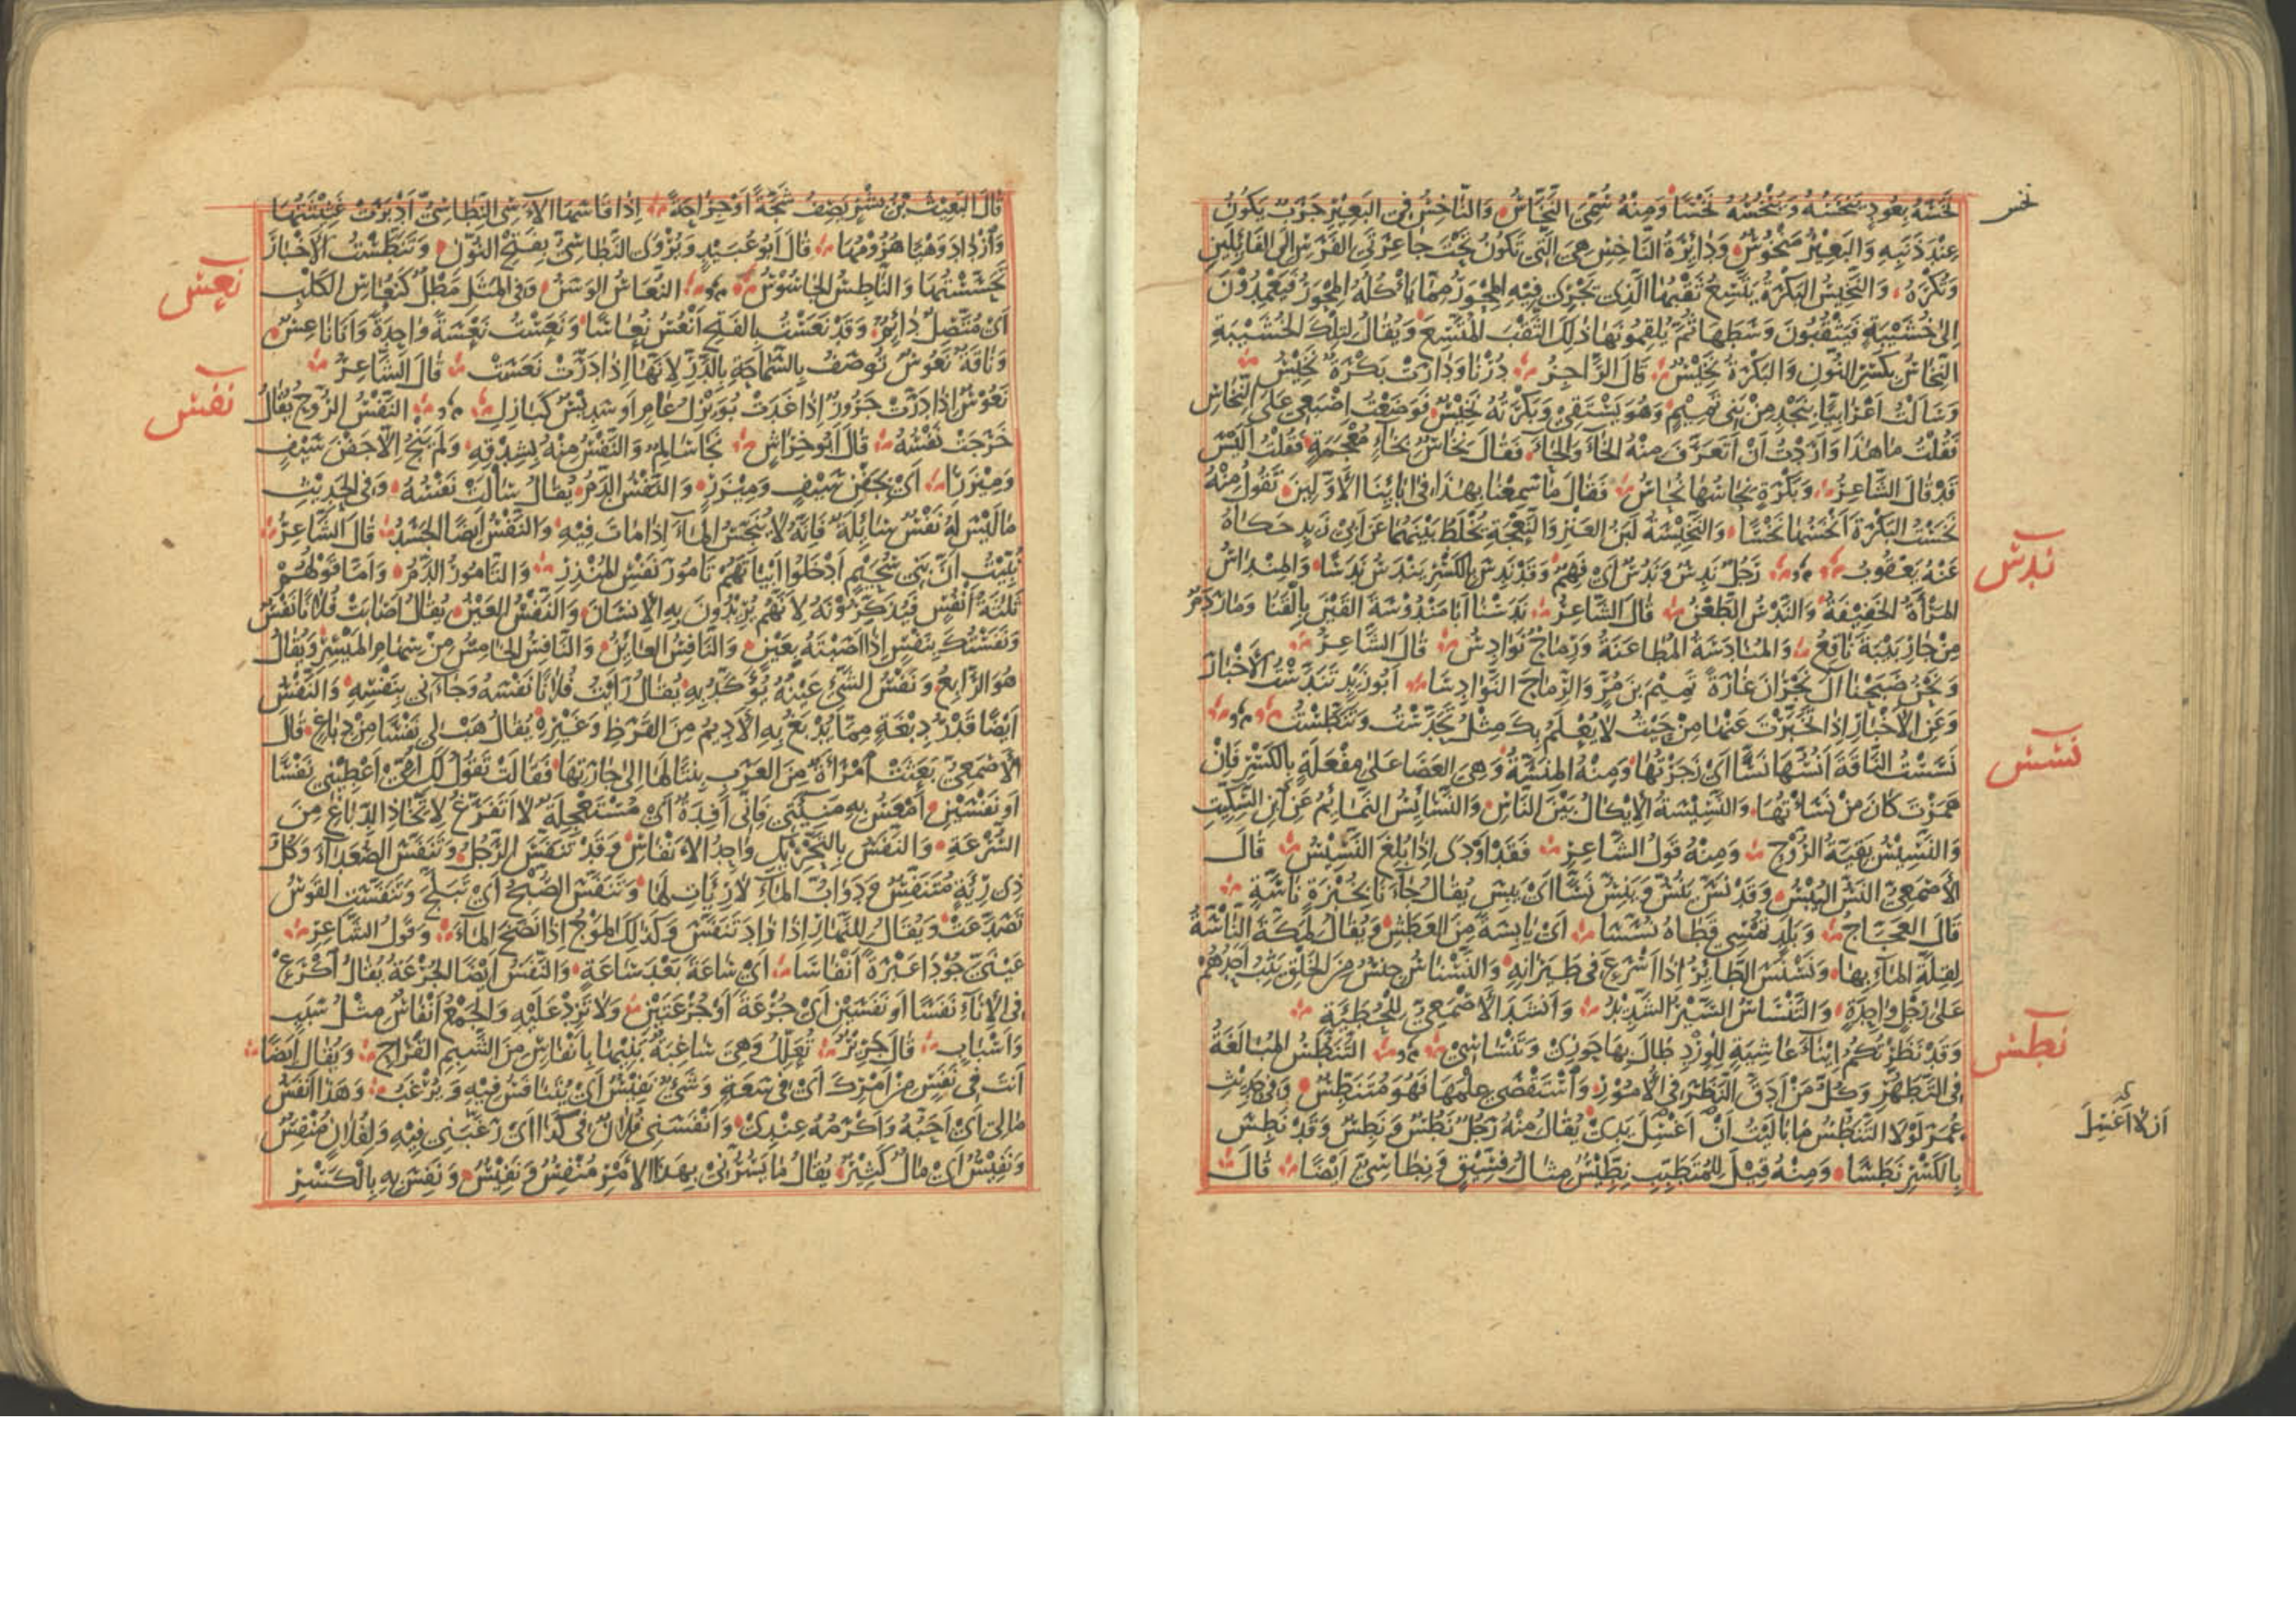 نخس
نَخَسَهُ بِعُودٍ يَنْخُسُهُ وَيَنْخَسُهُ نَخْسًا وَمِنْهُ سُمِّيَ النَّخَّاسُ وَالنَّاخِسُ فِي البَعِيْرِ جَرَبٌ يَكُونُ
عِنْدَ ذَنَبِهِ وَالبَعِيْرُ مَنْخُوسٌ وَدَائِرَةُ النَّاخِسِ هِيَ الَّتِي تَكُونُ تَحْتَ جَاعِرَتَيِ الفَرَسِ إِلَى الفَائِلَيْنِ
وَتُكْرَهُ وَالنَّخِيْسُ البَكْرَةُ يَتَّسِعُ ثَقْبُهَا الَّذِي يَجْرِي فِيْهِ المِحْوَرُ مِمَّا يَأْكُلُهُ المِحْوَرُ فَيَعْمِدُوْنَ
إِلَى خُشَيْبَةٍ فَيَثْقُبُونَ وَسَطَهَا ثُمَّ يُلْقِمُونَهَا ذٰلِكَ الثَّقْبَ المُتَّسِعَ وَيُقَالُ لِتِلْكَ الخُشَيْبَةِ
النِّخَاسُ بِكَسْرِ النُّونِ وَالبَكْرَةُ نَخِيْسٌ قَالَ الرَّاجِزُ دُرْنَا وَدَارَتْ بَكْرَةٌ نَخِيْسُ
وَسَأَلْتُ أَعْرَابِيًّا بِنَجْدٍ مِنْ بَنِي تَمِيْمٍ وَهُوَ يَسْتَقِي وَبَكْرَتُهُ نَخِيْسٌ فَوَضَعْتُ إِصْبَعِي عَلَى النِّخَاسِ
فَقُلْتُ مَا هٰذَا وَأَرَدْتُ أَنْ أَتَعَرَّفَ مِنْهُ الحَاءَ وَالخَاءَ فَقَالَ نِخَاسٌ بِخَاءٍ مُعْجَمَةٍ فَقُلْتُ أَلَيْسَ
قَدْ قَالَ الشَّاعِرُ وَبَكْرَةٍ نِحَاسُهَا نُحَاسُ فَقَالَ مَا سَمِعْنَا بِهٰذَا فِي آبَائِنَا الأَوَّلِيْنَ تَقُولُ مِنْهُ
نَخَسْتُ البَكْرَةَ أَنْخَسُهَا نَخْسًا وَالنَّخِيْسَةُ لَبَنُ العَنْزِ وَالنَّعْجَةِ يُخْلَطُ بَيْنَهُمَا عَنْ أَبِي زَيْدٍ حَكَاهُ
عَنْهُ يَعْقُوبُ رَجُلٌ نَدِسٌ وَنَدُسٌ أَيْ فَهِمٌ وَقَدْ نَدِسَ بِالكَسْرِ يَنْدَسُ نَدَسًا
ندس
المَرْأَةُ الخَفِيْفَةُ وَالنَّدْسُ الطَّعْنُ قَالَ الشَّاعِرُ نَدَسْنَا أَبَا مَنْدُوسَةَ القَيْنَ بِالقَنَا وَمَارَ دَمٌ
مِنْ جَارِ بَيْبَةَ نَاقِعُ وَالمُنَادَسَةُ المُطَاعَنَةُ وَرِمَاحٌ نَوَادِسُ قَالَ الشَّاعِرُ
وَنَحْنُ صَبَحْنَا آلَ نَجْرَانَ غَارَةً تَمِيْمَ بْنَ مُرٍّ وَالرِّمَاحَ النَّوَادِسَا أَبُو زَيْدٍ تَنَدَّسْتُ الأَخْبَارَ
وَعَنِ الأَخْبَارِ إِذَا تَخَبَّرْتَ عَنْهَا مِنْ حَيْثُ لَا يُعْلَمُ بِكَ مِثْلُ تَحَدَّسْتُ وَتَنَطَّسْتُ
نسس
نَسَسْتُ النَّاقَةَ أَنُسُّهَا نَسًّا أَيْ زَجَرْتُهَا وَمِنْهُ المِنَسَّةُ وَهِيَ العَصَا عَلَى مِفْعَلَةٍ بِالكَسْرِ فَإِنْ
هَمَزْتَ كَانَ مِنْ نَسَأْتُهَا وَالنَّسِيْسَةُ الإِيْكَالُ بَيْنَ النَّاسِ وَالنَّسَائِسُ النَّمَائِمُ عَنِ ابْنِ السِّكِّيْتِ
وَالنَّسِيْسُ بَقِيَّةُ الرُّوْحِ وَمِنْهُ قَوْلُ الشَّاعِرِ فَقَدْ أَوْدَى إِذَا بُلِغَ النَّسِيْسُ قَالَ
الأَصْمَعِيُّ النَّسُّ اليُبْسُ وَقَدْ نَسَّ يَنُسُّ وَيَنِسُّ نَسًّا أَيْ يَبِسَ يُقَالُ جَاءَنَا بِخُبْزَةٍ نَاسَّةٍ
قَالَ العَجَّاجُ وَبَلَدٍ تُمْسِي قَطَاهُ نُسَّسَا أَيْ يَابِسَةً مِنَ العَطَشِ وَيُقَالُ لِمَكَّةَ النَّاسَّةُ
لِقِلَّةِ المَاءِ بِهَا وَنَسْنَسَ الطَّائِرُ إِذَا أَسْرَعَ فِي طَيَرَانِهِ وَالنَّسْنَاسُ جِنْسٌ مِنَ الخَلْقِ يَثِبُ أَحَدُهُمْ
عَلَى رِجْلٍ وَاحِدَةٍ وَالتَّنْسَاسُ السَّيْرُ الشَّدِيْدُ وَأَنْشَدَ الأَصْمَعِيُّ لِلْحُطَيْئَةِ
وَقَدْ نَظَرْتُكُمُ إِيْنَاءَ عَاشِيَةٍ لِلْوِرْدِ طَالَ بِهَا حَوْزِي وَتَنْسَاسِي التَّنَطُّسُ المُبَالَغَةُ
نطس
فِي التَّطَهُّرِ وَكُلُّ مَنْ أَدَقَّ النَّظَرَ فِي الأُمُورِ وَاسْتَقْصَى عِلْمَهَا فَهُوَ مُتَنَطِّسٌ وَفِي حَدِيْثِ
عُمَرَ لَوْلَا التَّنَطُّسُ مَا بَالَيْتُ أَنْ أَغْسِلَ يَدِي يُقَالُ مِنْهُ رَجُلٌ نَطُسٌ وَنَطِسٌ وَقَدْ نَطِسَ
أن لا أغسل
بِالكَسْرِ نَطَسًا وَمِنْهُ قِيْلَ لِلْمُتَطَبِّبِ نِطِّيْسٌ مِثَالُ فِسِّيْقٍ وَنِطَاسِيٌّ أَيْضًا قَالَ
قَالَ البَعِيْثُ بْنُ بِشْرٍ يَصِفُ شَجَّةً أَوْ جِرَاحَةً إِذَا قَاسَهَا الآسِي النِّطَاسِيُّ أَدْبَرَتْ غَثِيْثَتُهَا
وَازْدَادَ وَهْيًا هُزُوْمُهَا قَالَ أَبُو عُبَيْدٍ وَيُرْوَى النَّطَاسِيُّ بِفَتْحِ النُّوْنِ وَتَنَطَّسْتُ الأَخْبَارَ
تَجَسَّسْتُهَا وَالنَّاطِسُ الجَاسُوْسُ النُّعَاسُ الوَسَنُ وَفِي المَثَلِ مَطْلٌ كَنُعَاسِ الكَلْبِ
نعس
أَيْ مُتَّصِلٌ دَائِمٌ وَقَدْ نَعَسْتُ بِالفَتْحِ أَنْعُسُ نُعَاسًا وَنَعَسْتُ نَعْسَةً وَاحِدَةً وَأَنَا نَاعِسٌ
وَنَاقَةٌ نَعُوسٌ تُوصَفُ بِالسَّمَاحَةِ بِالدَّرِّ لِأَنَّهَا إِذَا دَرَّتْ نَعَسَتْ قَالَ الشَّاعِرُ
نَعُوسٌ إِذَا دَرَّتْ جَرُوزٌ إِذَا غَدَتْ بُوَيْزِلُ عَامٍ أَو سَدِيْسٌ كَبَازِلِ النَّفْسُ الرُّوحُ يُقَالُ
نفس
خَرَجَتْ نَفْسُهُ قَالَ أَبُو خِرَاشٍ نَجَا سَالِمٌ وَالنَّفْسُ مِنْهُ بِشِدْقِهِ وَلَمْ يَنْجُ إِلَّا جَفْنَ سَيْفٍ
وَمِئْزَرَا أَيْ بِجَفْنِ سَيْفٍ وَمِئْزَرٍ وَالنَّفْسُ الدَّمُ يُقَالُ سَالَتْ نَفْسُهُ وَفِي الحَدِيْثِ
مَا لَيْسَ لَهُ نَفْسٌ سَائِلَةٌ فَإِنَّهُ لَا يُنَجِّسُ المَاءَ إِذَا مَاتَ فِيْهِ وَالنَّفْسُ أَيْضًا الجَسَدُ قَالَ الشَّاعِرُ
نُبِّئْتُ أَنَّ بَنِي سُحَيْمٍ أَدْخَلُوا أَبْيَاتَهُمْ تَامُورَ نَفْسِ المُنْذِرِ وَالتَّامُورُ الدَّمُ وَأَمَّا قَوْلُهُمْ
ثَلٰثَةُ أَنْفُسٍ فَيُذَكِّرُوْنَهُ لِأَنَّهُمْ يُرِيْدُونَ بِهِ الإِنْسَانَ وَالنَّفْسُ العَيْنُ يُقَالُ أَصَابَتْ فُلَانًا نَفْسٌ
وَنَفَسْتُكَ بِنَفْسٍ إِذَا أَصَبْتَهُ بِعَيْنٍ وَالنَّافِسُ العَائِنُ وَالنَّافِسُ الخَامِسُ مِنْ سِهَامِ المَيْسِرِ وَيُقَالُ
هُوَ الرَّابِعُ وَنَفْسُ الشَّيْءِ عَيْنُهُ يُؤَكَّدُ بِهِ يُقَالُ رَأَيْتُ فُلَانًا نَفْسَهُ وَجَاءَنِي بِنَفْسِهِ وَالنَّفْسُ
أَيْضًا قَدْرُ دِبْغَةٍ مِمَّا يُدْبَغُ بِهِ الأَدِيْمُ مِنَ القَرَظِ وَغَيْرِهِ يُقَالُ هَبْ لِي نَفْسًا مِنْ دِبَاغٍ قَالَ
الأَصْمَعِيُّ بَعَثَتْ امْرَأَةٌ مِنَ العَرَبِ بِنْتًا لَهَا إِلَى جَارَتِهَا فَقَالَتْ تَقُولُ لَكِ أُمِّي أَعْطِيْنِي نَفْسًا
أَو نَفْسَيْنِ أَمْعَسُ بِهِ مَنِيْئَتِي فَإِنِّي أَفِدَةٌ أَيْ مُسْتَعْجِلَةٌ لَا أَتَفَرَّغُ لِاتِّخَاذِ الدِّبَاغِ مِنَ
السُّرْعَةِ وَالنَّفَسُ بِالتَّحْرِيْكِ وَاحِدُ الأَنْفَاسِ وَقَدْ تَنَفَّسَ الرَّجُلُ وَتَنَفَّسَ الصُّعَدَاءَ وَكُلُّ
ذِي رِئَةٍ مُتَنَفِّسٌ وَدَوَابُّ المَاءِ لَا رِئَاتِ لَهَا وَتَنَفَّسَ الصُّبْحُ أَيْ تَبَلَّجَ وَتَنَفَّسَتِ القَوْسُ
تَصَدَّعَتْ وَيُقَالُ لِلنَّهَارِ إِذَا زَادَ تَنَفَّسَ وَكَذٰلِكَ المَوْجُ إِذَا نَضَحَ المَاءَ وَقَوْلُ الشَّاعِرِ
عَيْنَيَّ جُوْدَا عَبْرَةً أَنْفَاسَا أَيْ سَاعَةً بَعْدَ سَاعَةٍ وَالنَّفَسُ أَيْضًا الجُرْعَةُ يُقَالُ اكْرَعْ
فِي الإِنَاءِ نَفَسًا أَو نَفَسَيْنِ أَيْ جُرْعَةً أَوْ جُرْعَتَيْنِ وَلَا تَزِدْ عَلَيْهِ وَالجَمْعُ أَنْفَاسٌ مِثْلُ سَبَبٍ
وَأَسْبَابٍ قَالَ جَرِيْرٌ تُعَلِّلُ وَهِيَ سَاغِبَةٌ بَنِيْهَا بِأَنْفَاسٍ مِنَ الشَّبِمِ القَرَاحِ وَيُقَالُ أَيْضًا
أَنْتَ فِي نَفَسٍ مِنْ أَمْرِكَ أَيْ فِي سَعَةٍ وَشَيْءٌ نَفِيْسٌ أَيْ يُتَنَافَسُ فِيْهِ وَيُرْغَبُ وَهٰذَا أَنْفَسُ
مَالِي أَيْ أَحَبُّهُ وَأَكْرَمُهُ عِنْدِي وَأَنْفَسَنِي فُلَانٌ فِي كَذَا أَيْ رَغَّبَنِي فِيْهِ وَلِفُلَانٍ مُنْفِسٌ
وَنَفِيْسٌ أَيْ مَالٌ كَثِيْرٌ يُقَالُ مَا يَسُرُّنِي بِهٰذَا الأَمْرِ مُنْفِسٌ وَنَفِيْسٌ وَنَفِسَ بِهِ بِالكَسْرِ